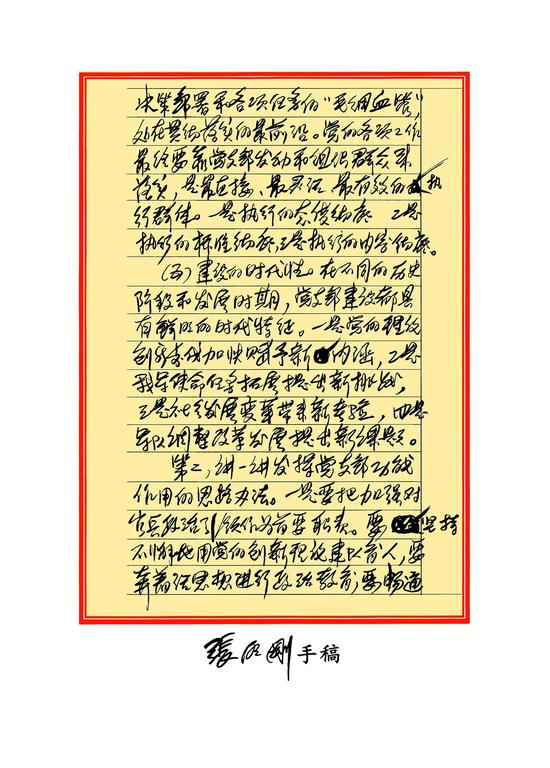 决策部署和各项任务的“毛细血管”,
处在贯彻落实的最前沿。党的各项工作
最终要靠党支部发动和组织群众来
落实,是最直接、最灵活、最有效的执
行群体。一是执行的态度彻底 二是
执行的标准彻底,三是执行的内容彻底。
(五)建设的时代性。在不同的历史
阶段和发展时期,党支部建设都具
有鲜明的时代特征。一是党的理论
创新步伐加快赋予新内涵,二是
我军使命任务拓展提出新挑战,
三是社会发展变革带来新考验,四是
军队调整改革发展提出新课题。
第二,讲一讲发挥党支部功能
作用的思路办法。一是要把加强对
官兵政治引领作为首要职责。要坚持
不懈地用党的创新理论建队育人,要
奔着活思想进行政治教育,要畅通
張明剛手稿